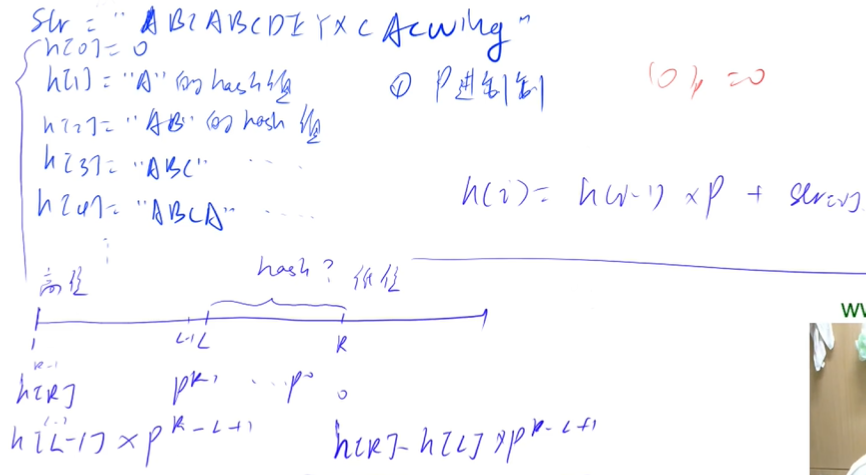 Str = "ABCABCDEYXCAcwing"
h[0] = 0
h[1] = "A"的hash值
① P进制
(0)p = 0
h[2] = "AB"的hash值
h[3] = "ABC" ....
h[4] = "ABCA" ....
h(i) = h(i-1) × P + str[i]
高位
hash?
低位
1
L-1 L
R
R-1
h[R]
p^R-1 ... p^0
0
h[L-1] × p^R-L+1
h[R] - h[L] × p^R-L+1